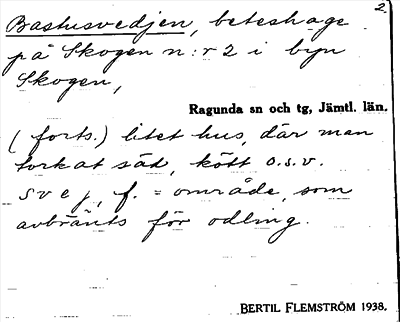 2.
Bastusvedjen, beteshage
på Skogen n:r 2 i byn
Skogen,
Ragunda sn och tg, Jämtl. län.
(forts.) litet hus, där man
torkat säd, kött o.s.v.
svej, f. = område, som
avbränts för odling.
BERTIL FLEMSTRÖM 1938.